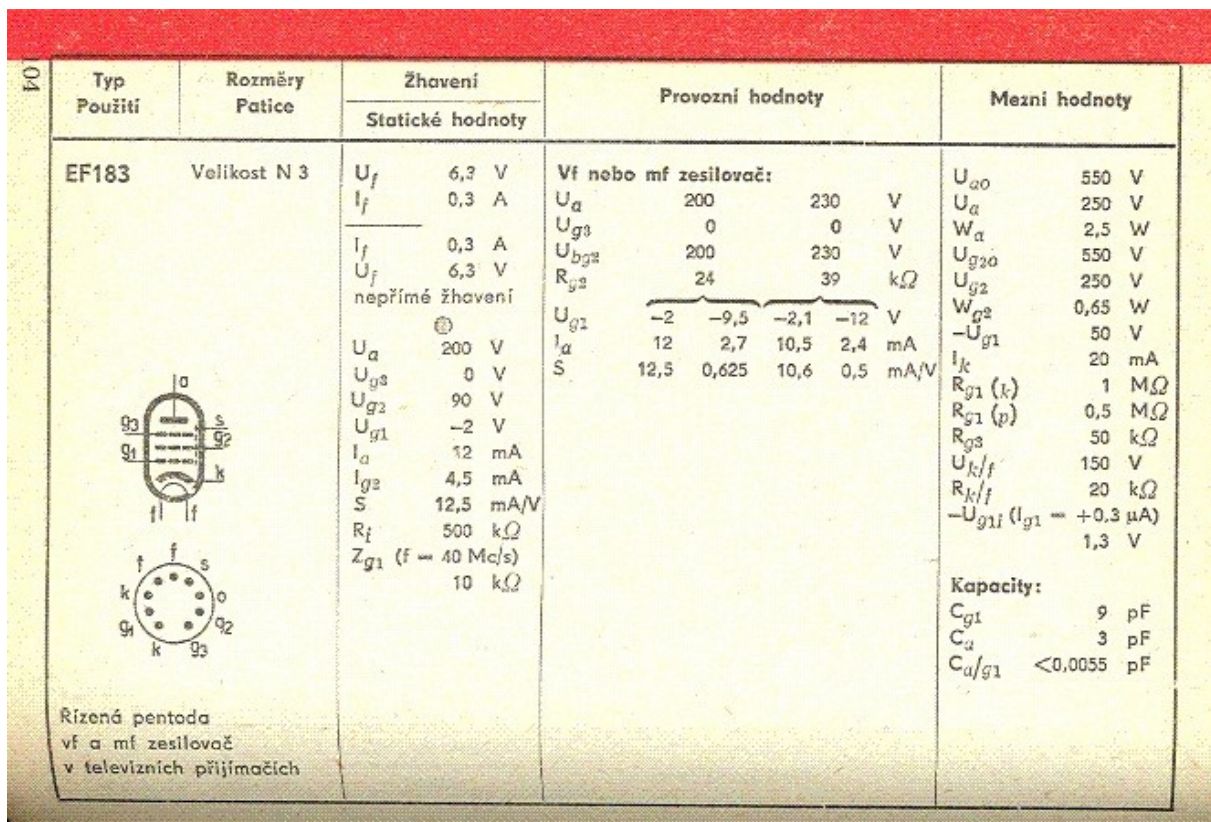 104
Typ
Použití
Rozměry
Patice
Žhavení
Statické hodnoty
Provozní hodnoty
Mezní hodnoty
EF183
Velikost N 3
a
g3
s
g2
g1
k
f f
f f s
k a
g1 g2
k g3
Řízená pentoda
vf a mf zesilovač
v televizních přijímačích
Uf 6,3 V
If 0,3 A
If 0,3 A
Uf 6,3 V
nepřímé žhavení
Ua 200 V
Ug3 0 V
Ug2 90 V
Ug1 −2 V
Ia 12 mA
Ig2 4,5 mA
S 12,5 mA/V
Ri 500 kΩ
Zg1 (f = 40 Mc/s)
10 kΩ
Vf nebo mf zesilovač:
Ua 200 230 V
Ug3 0 0 V
Ubg2 200 230 V
Rg2 24 39 kΩ
Ug1 −2 −9,5 −2,1 −12 V
Ia 12 2,7 10,5 2,4 mA
S 12,5 0,625 10,6 0,5 mA/V
Uao 550 V
Ua 250 V
Wa 2,5 W
Ug2o 550 V
Ug2 250 V
Wg2 0,65 W
−Ug1 50 V
Ik 20 mA
Rg1 (k) 1 MΩ
Rg1 (p) 0,5 MΩ
Rg3 50 kΩ
Uk/f 150 V
Rk/f 20 kΩ
−Ug1i (Ig1 = +0,3 μA)
1,3 V
Kapacity:
Cg1 9 pF
Ca 3 pF
Ca/g1 <0,0055 pF